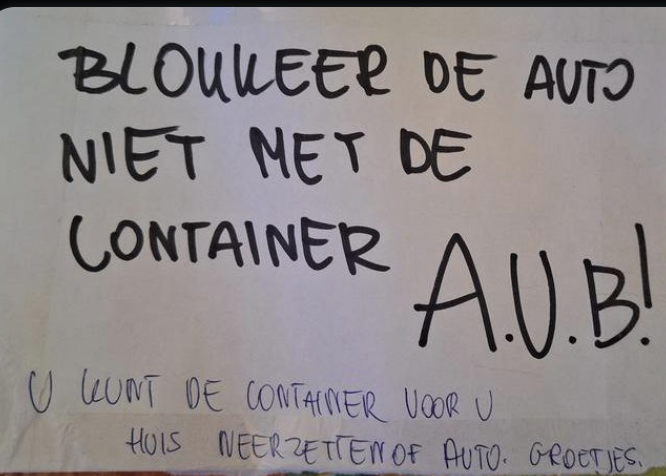 BLOKKEER DE AUTO
NIET MET DE
CONTAINER
A.U.B!
U KUNT DE CONTAINER VOOR U
HUIS NEERZETTEN OF AUTO. GROETJES.